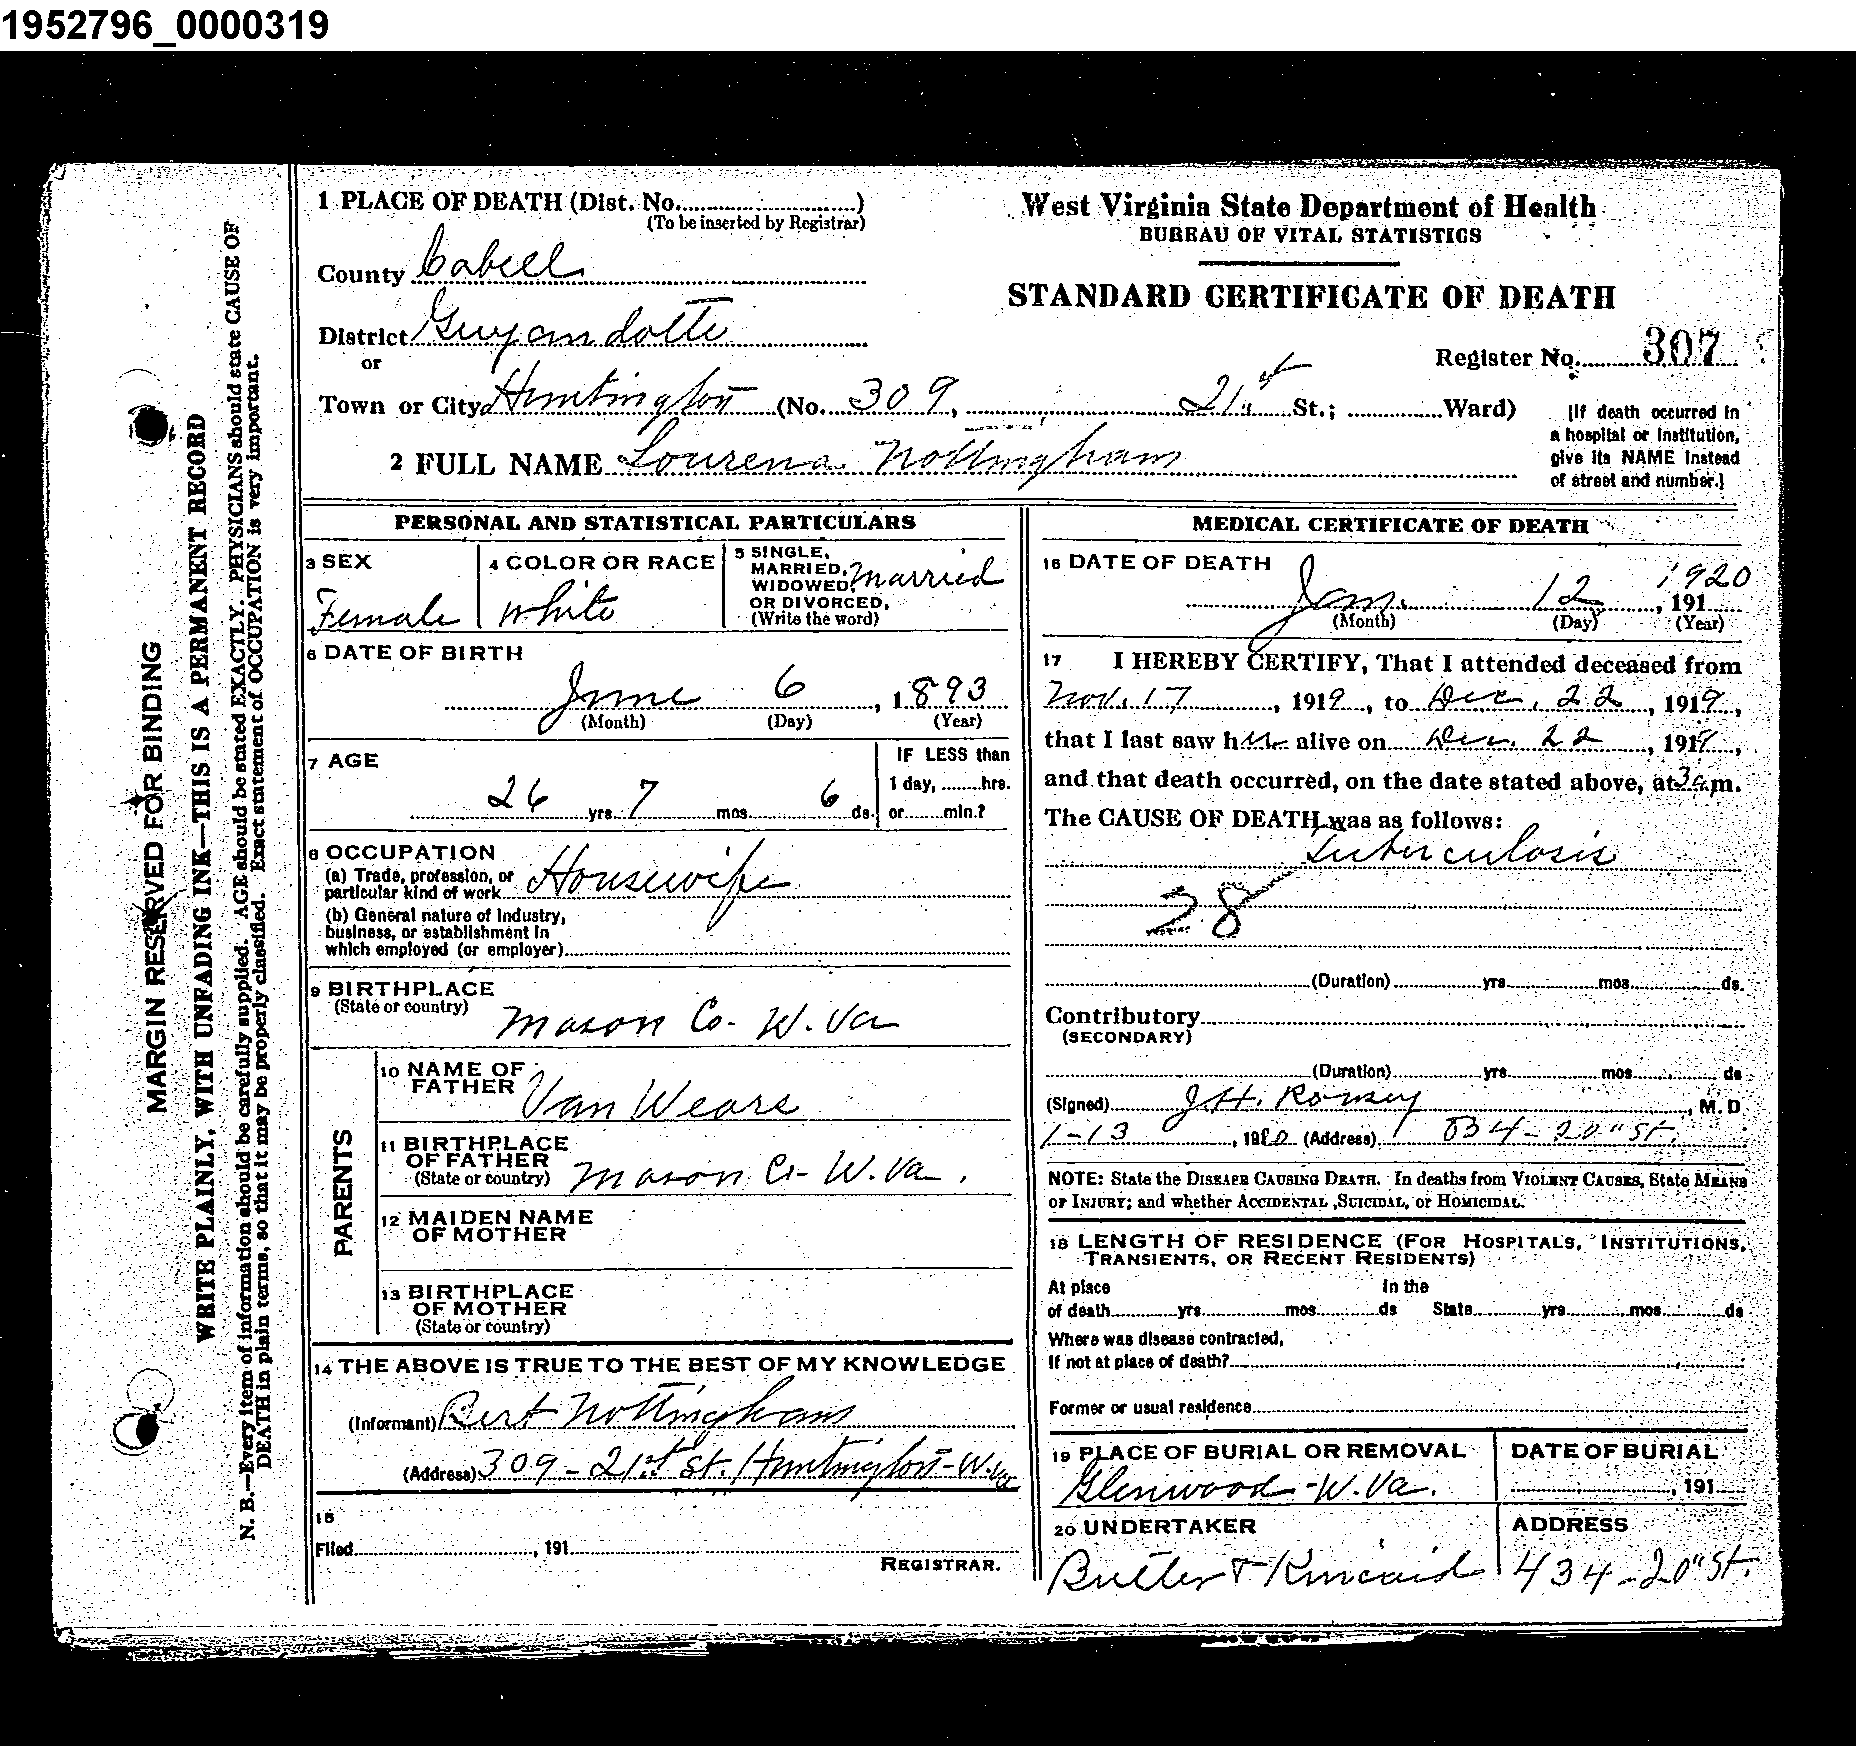 1952796_0000319
1 PLACE OF DEATH (Dist. No.......)
(To be inserted by Registrar)
County Cabell
District Guyandotte
or
Town or City Huntington (No. 309, 21st St.; ....... Ward)
2 FULL NAME Lourena Nottingham
West Virginia State Department of Health
BUREAU OF VITAL STATISTICS
STANDARD CERTIFICATE OF DEATH
Register No. 307
[If death occurred in
a hospital or institution,
give its NAME instead
of street and number.]
MARGIN RESERVED FOR BINDING
WRITE PLAINLY, WITH UNFADING INK—THIS IS A PERMANENT RECORD
N. B.—Every item of information should be carefully supplied. AGE should be stated EXACTLY. PHYSICIANS should state CAUSE OF
DEATH in plain terms, so that it may be properly classified. Exact statement of OCCUPATION is very important.
PERSONAL AND STATISTICAL PARTICULARS
3 SEX
Female
4 COLOR OR RACE
White
5 SINGLE,
MARRIED,
WIDOWED,
OR DIVORCED,
(Write the word)
Married
6 DATE OF BIRTH
June 6, 1893
(Month) (Day) (Year)
7 AGE
26 yrs. 7 mos. 6 ds.
IF LESS than
1 day, ....... hrs.
or ....... min.?
8 OCCUPATION
(a) Trade, profession, or
particular kind of work Housewife
(b) General nature of Industry,
business, or establishment in
which employed (or employer)
9 BIRTHPLACE
(State or country)
Mason Co- W. Va
PARENTS
10 NAME OF
FATHER Van Wears
11 BIRTHPLACE
OF FATHER
(State or country) Mason Co- W. Va.
12 MAIDEN NAME
OF MOTHER
13 BIRTHPLACE
OF MOTHER
(State or country)
14 THE ABOVE IS TRUE TO THE BEST OF MY KNOWLEDGE
(Informant) Bert Nottingham
(Address) 309 - 21st St. Huntington - W. Va
15
Filed ......., 191
REGISTRAR.
MEDICAL CERTIFICATE OF DEATH
16 DATE OF DEATH
Jan. 12, 191 1920
(Month) (Day) (Year)
17 I HEREBY CERTIFY, That I attended deceased from
Nov. 17, 1919, to Dec. 22, 1919,
that I last saw her alive on Dec. 22, 1919,
and that death occurred, on the date stated above, at 3 a.m.
The CAUSE OF DEATH was as follows:
Tuberculosis
28
(Duration) ....... yrs. ....... mos. ....... ds.
Contributory
(SECONDARY)
(Duration) ....... yrs. ....... mos. ....... ds
(Signed) J.H. , M. D
1-13, 1920 (Address) 834 - 20" St.
NOTE: State the DISEASE CAUSING DEATH. In deaths from VIOLENT CAUSES, State MEANS
OF INJURY; and whether ACCIDENTAL, SUICIDAL, or HOMICIDAL.
18 LENGTH OF RESIDENCE (FOR HOSPITALS, INSTITUTIONS,
TRANSIENTS, OR RECENT RESIDENTS)
At place In the
of death ....... yrs. ....... mos. ....... ds State ....... yrs. ....... mos. ....... ds
Where was disease contracted,
If not at place of death?
Former or usual residence
19 PLACE OF BURIAL OR REMOVAL
Glenwood - W. Va.
DATE OF BURIAL
......., 191
20 UNDERTAKER
Butler & Kincaid
ADDRESS
434 - 20" St.